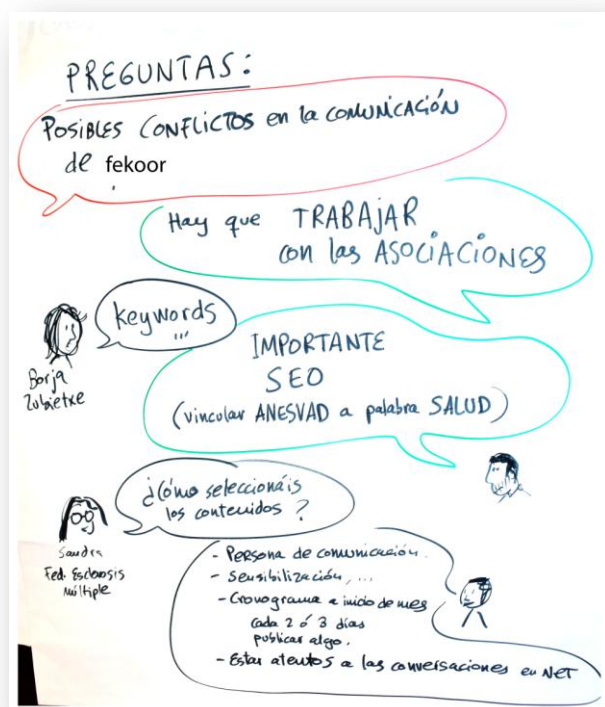 PREGUNTAS:
POSIBLES CONFLICTOS en la COMUNICACIÓN
de fekoor
Hay que TRABAJAR
con las ASOCIACIONES
keywords
...
Borja
Zubietxe
IMPORTANTE
SEO
(vincular ANESVAD a palabra SALUD)
¿Cómo seleccionáis
los contenidos?
Sandra
Fed. Esclerosis
múltiple
- Persona de comunicación.
- Sensibilización, ...
- Cronograma a inicio de mes
cada 2 ó 3 días
publicar algo.
- Estar atentos a las conversaciones en NET